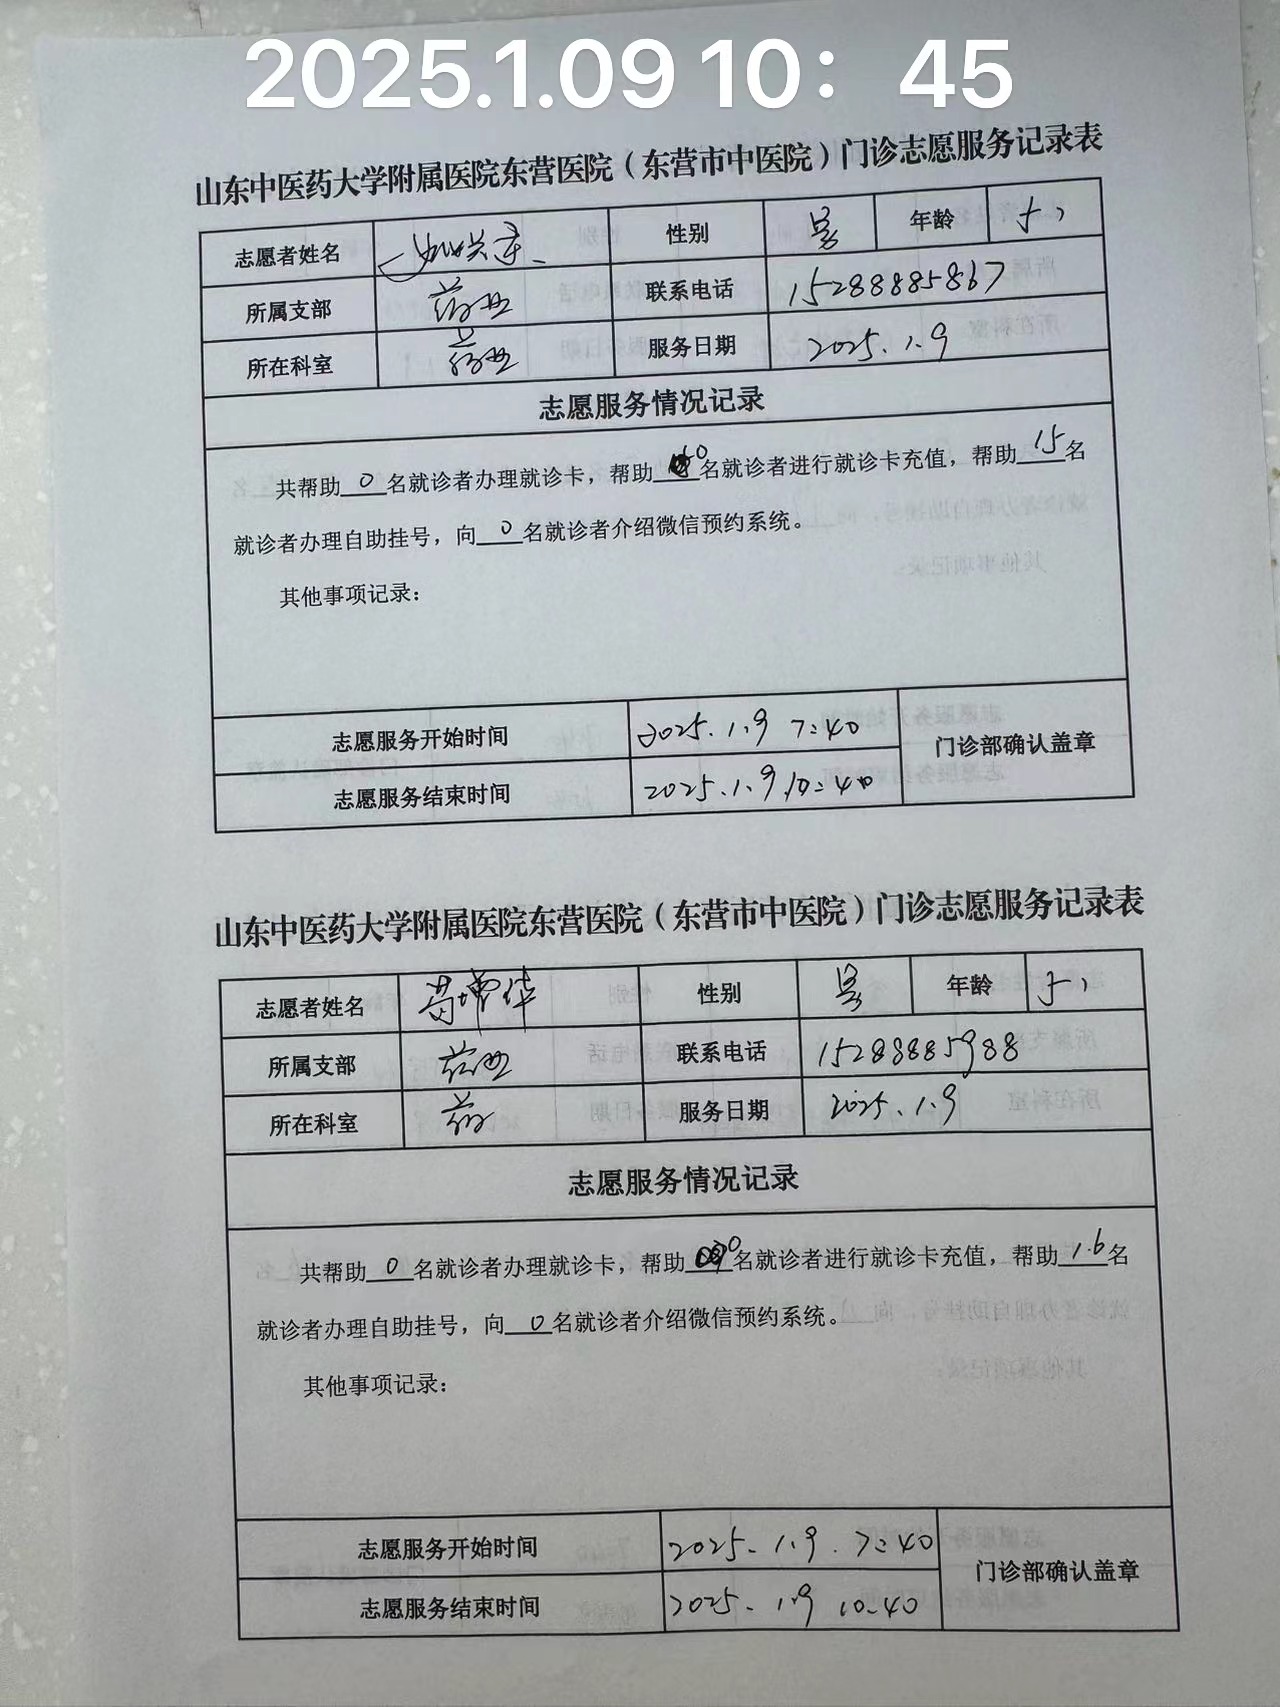 2025.1.09 10：45
山东中医药大学附属医院东营医院（东营市中医院）门诊志愿服务记录表
志愿者姓名 性别 男 年龄
所属支部 药西 联系电话 15288885867
所在科室 药西 服务日期 2025.1.9
志愿服务情况记录
共帮助 0 名就诊者办理就诊卡，帮助 0 名就诊者进行就诊卡充值，帮助 15 名
就诊者办理自助挂号，向 0 名就诊者介绍微信预约系统。
其他事项记录：
志愿服务开始时间 2025.1.9 7:40 门诊部确认盖章
志愿服务结束时间 2025.1.9 10:40
山东中医药大学附属医院东营医院（东营市中医院）门诊志愿服务记录表
志愿者姓名 性别 男 年龄
所属支部 药西 联系电话 15288885988
所在科室 药 服务日期 2025.1.9
志愿服务情况记录
共帮助 0 名就诊者办理就诊卡，帮助 0 名就诊者进行就诊卡充值，帮助 16 名
就诊者办理自助挂号，向 0 名就诊者介绍微信预约系统。
其他事项记录：
志愿服务开始时间 2025.1.9. 7:40 门诊部确认盖章
志愿服务结束时间 2025.1.9 10:40